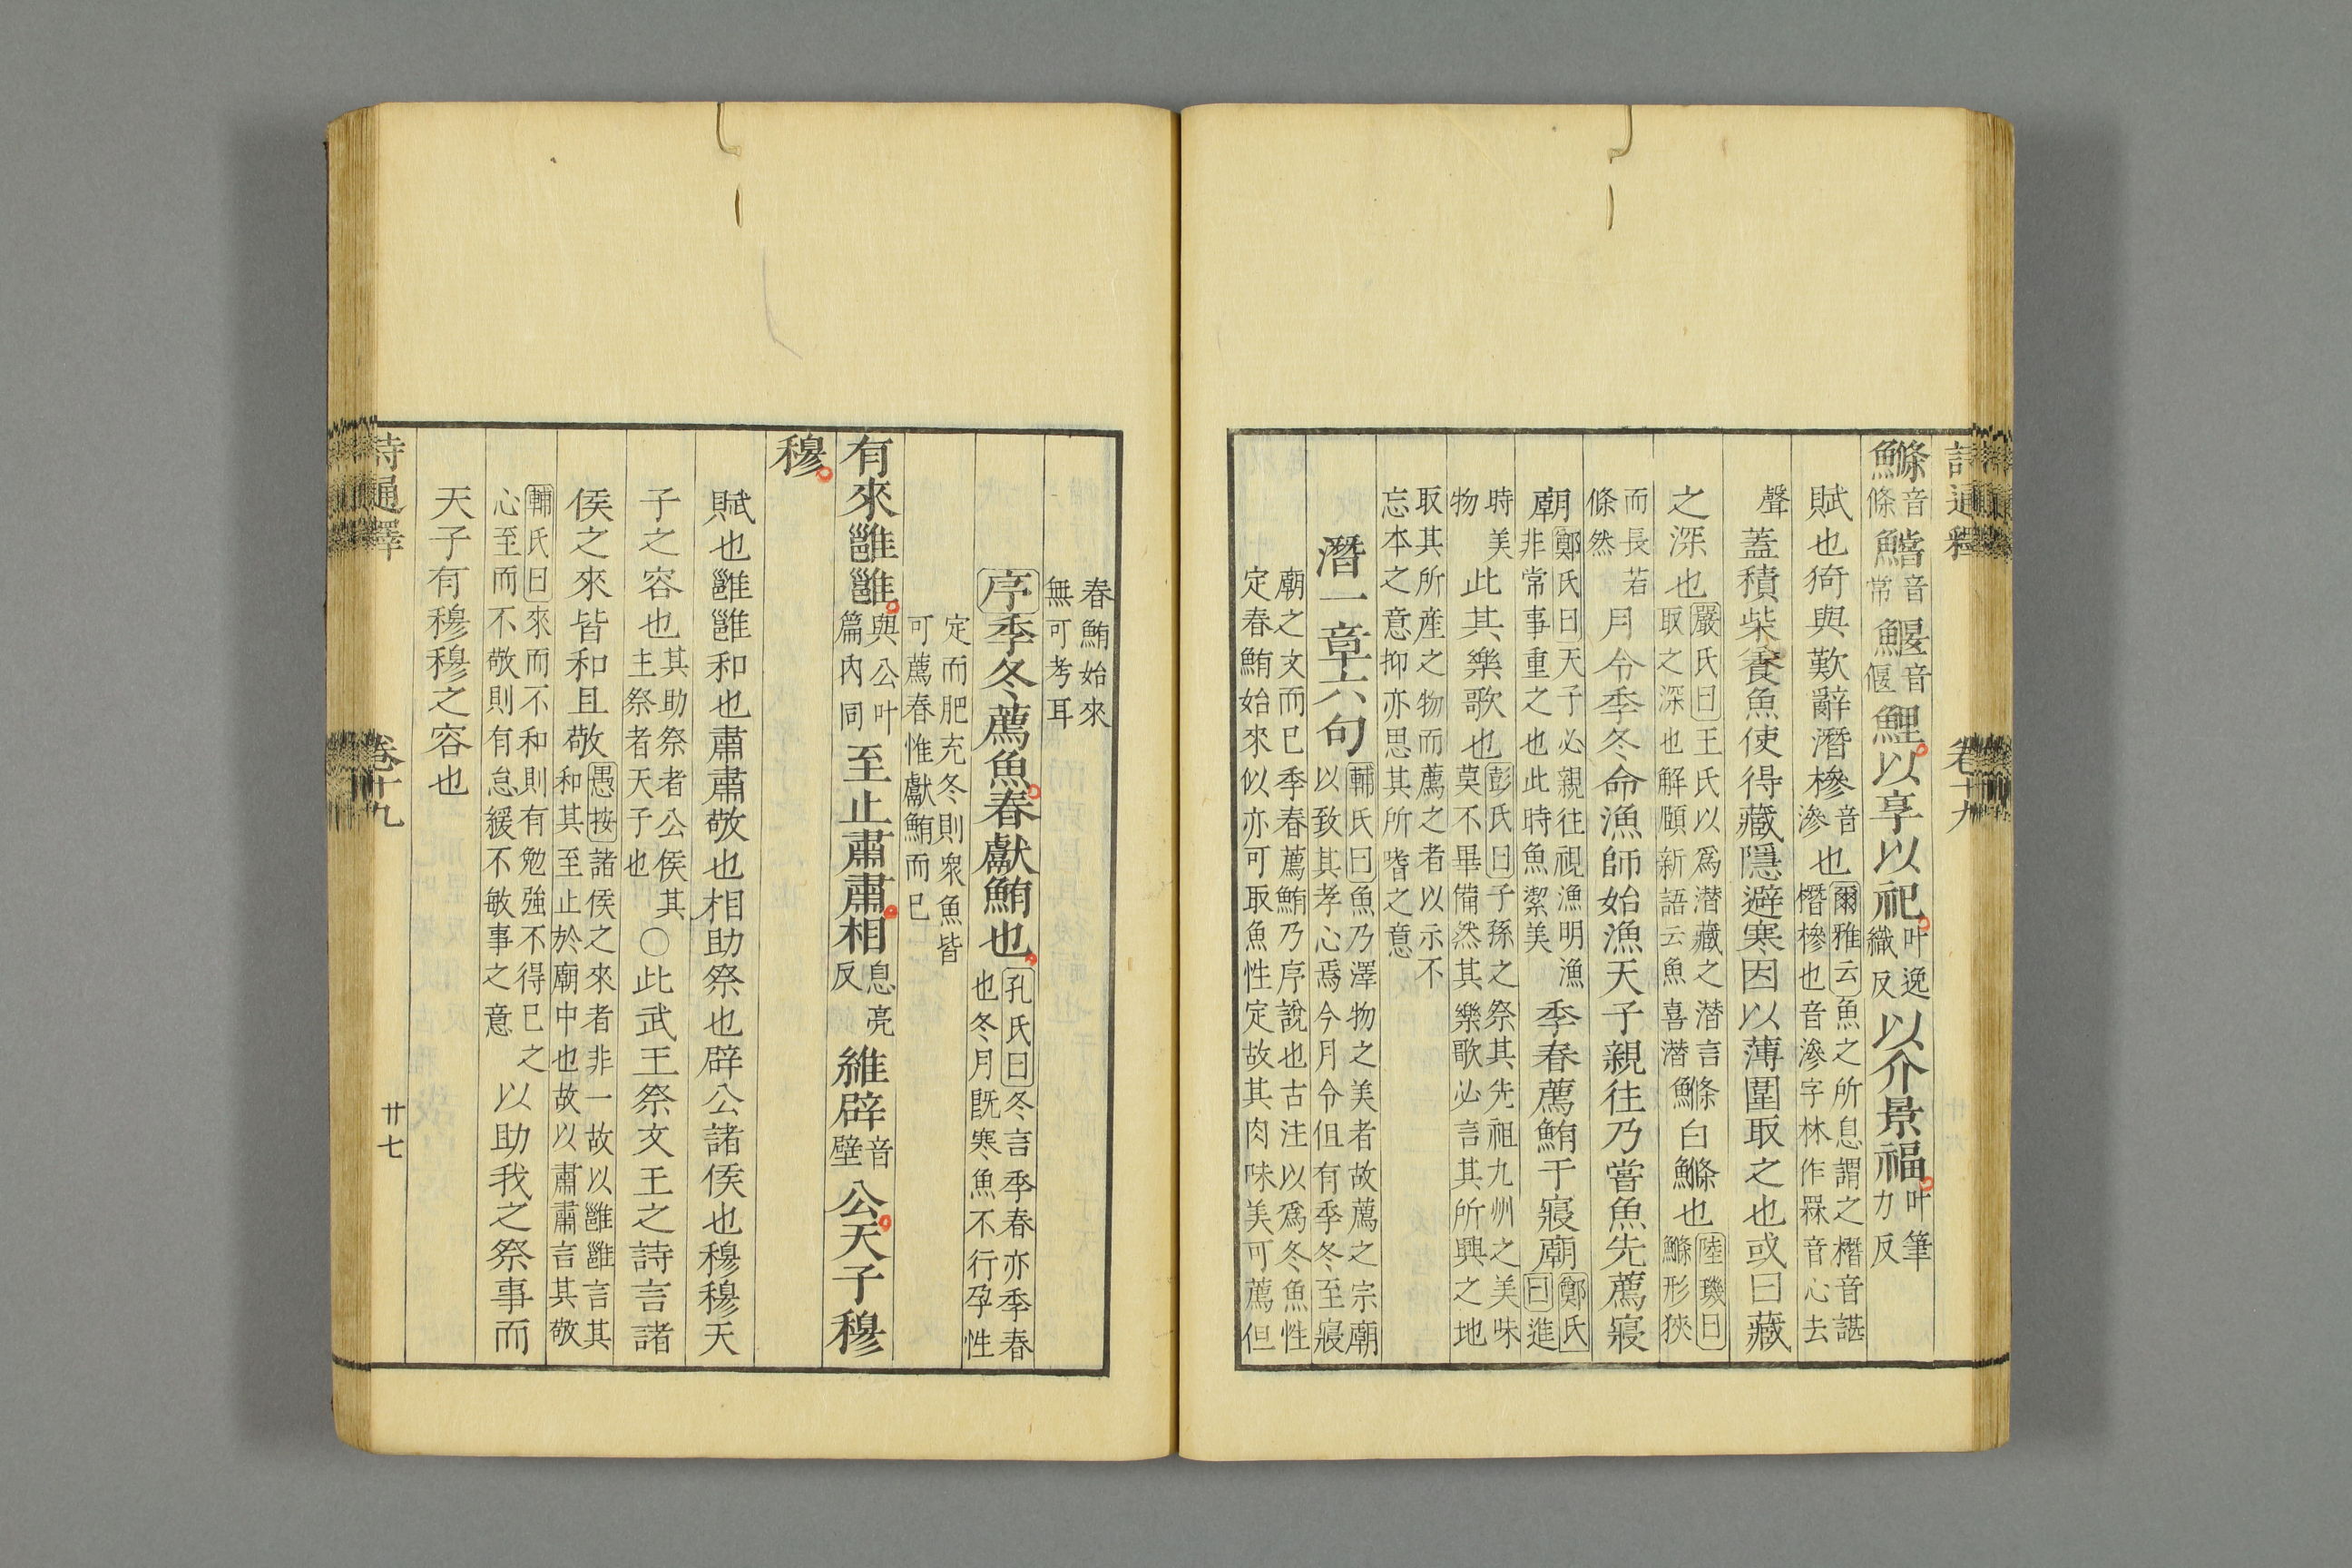 詩通釋 卷十九
鰷音條鱨音常鰋音偃鯉以享以祀叶逸織反以介景福叶筆力反
賦也猗與歎辭潛槮音滲也爾雅云魚之所息謂之橬音諶橬槮也音滲字林作罧音心去
聲蓋積柴養魚使得藏隱避寒因以薄圍取之也或曰藏
之深也嚴氏曰王氏以爲潛藏之潛言取之深也解頤新語云魚喜潛鰷白鰷也陸璣曰鰷形狹
而長若條然月令季冬命漁師始漁天子親往乃嘗魚先薦寢
廟鄭氏曰天子必親往視漁明漁非常事重之也此時魚潔美季春薦鮪于寢廟鄭氏曰進
時美物此其樂歌也彭氏曰子孫之祭其先祖九州之美味莫不畢備然其樂歌必言其所興之地
取其所產之物而薦之者以示不忘本之意抑亦思其所嗜之意
潛一章六句輔氏曰魚乃澤物之美者故薦之宗廟以致其孝心焉今月令但有季冬至寢
廟之文而已季春薦鮪乃序說也古注以爲冬魚性定春鮪始來似亦可取魚性定故其肉味美可薦但
春鮪始來無可考耳
序季冬薦魚春獻鮪也孔氏曰冬言季春亦季春也冬月既寒魚不行孕性
定而肥充冬則衆魚皆可薦春惟獻鮪而已
有來雝雝與公叶篇內同至止肅肅相息亮反維辟音璧公天子穆
穆
賦也雝雝和也肅肅敬也相助祭也辟公諸侯也穆穆天
子之容也其助祭者公侯其主祭者天子也○此武王祭文王之詩言諸
侯之來皆和且敬愚按諸侯之來者非一故以雝雝言其和其至止於廟中也故以肅肅言其敬
輔氏曰來而不和則有勉強不得已之心至而不敬則有怠緩不敏事之意以助我之祭事而
天子有穆穆之容也
詩通釋 卷十九 廿七